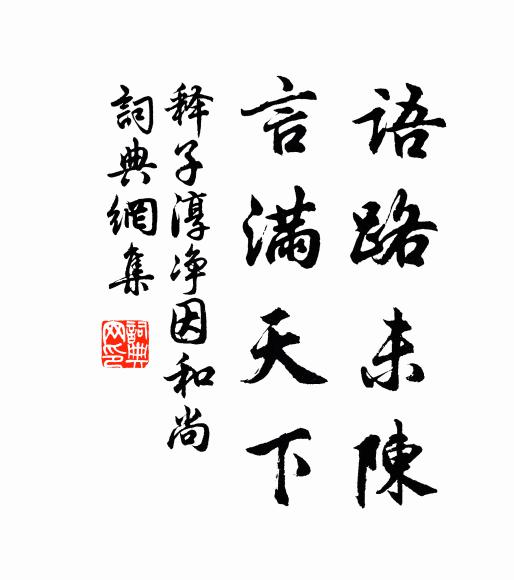 語路未陳
言滿天下
释子淳净因和尚
詞典網集
詞典網印